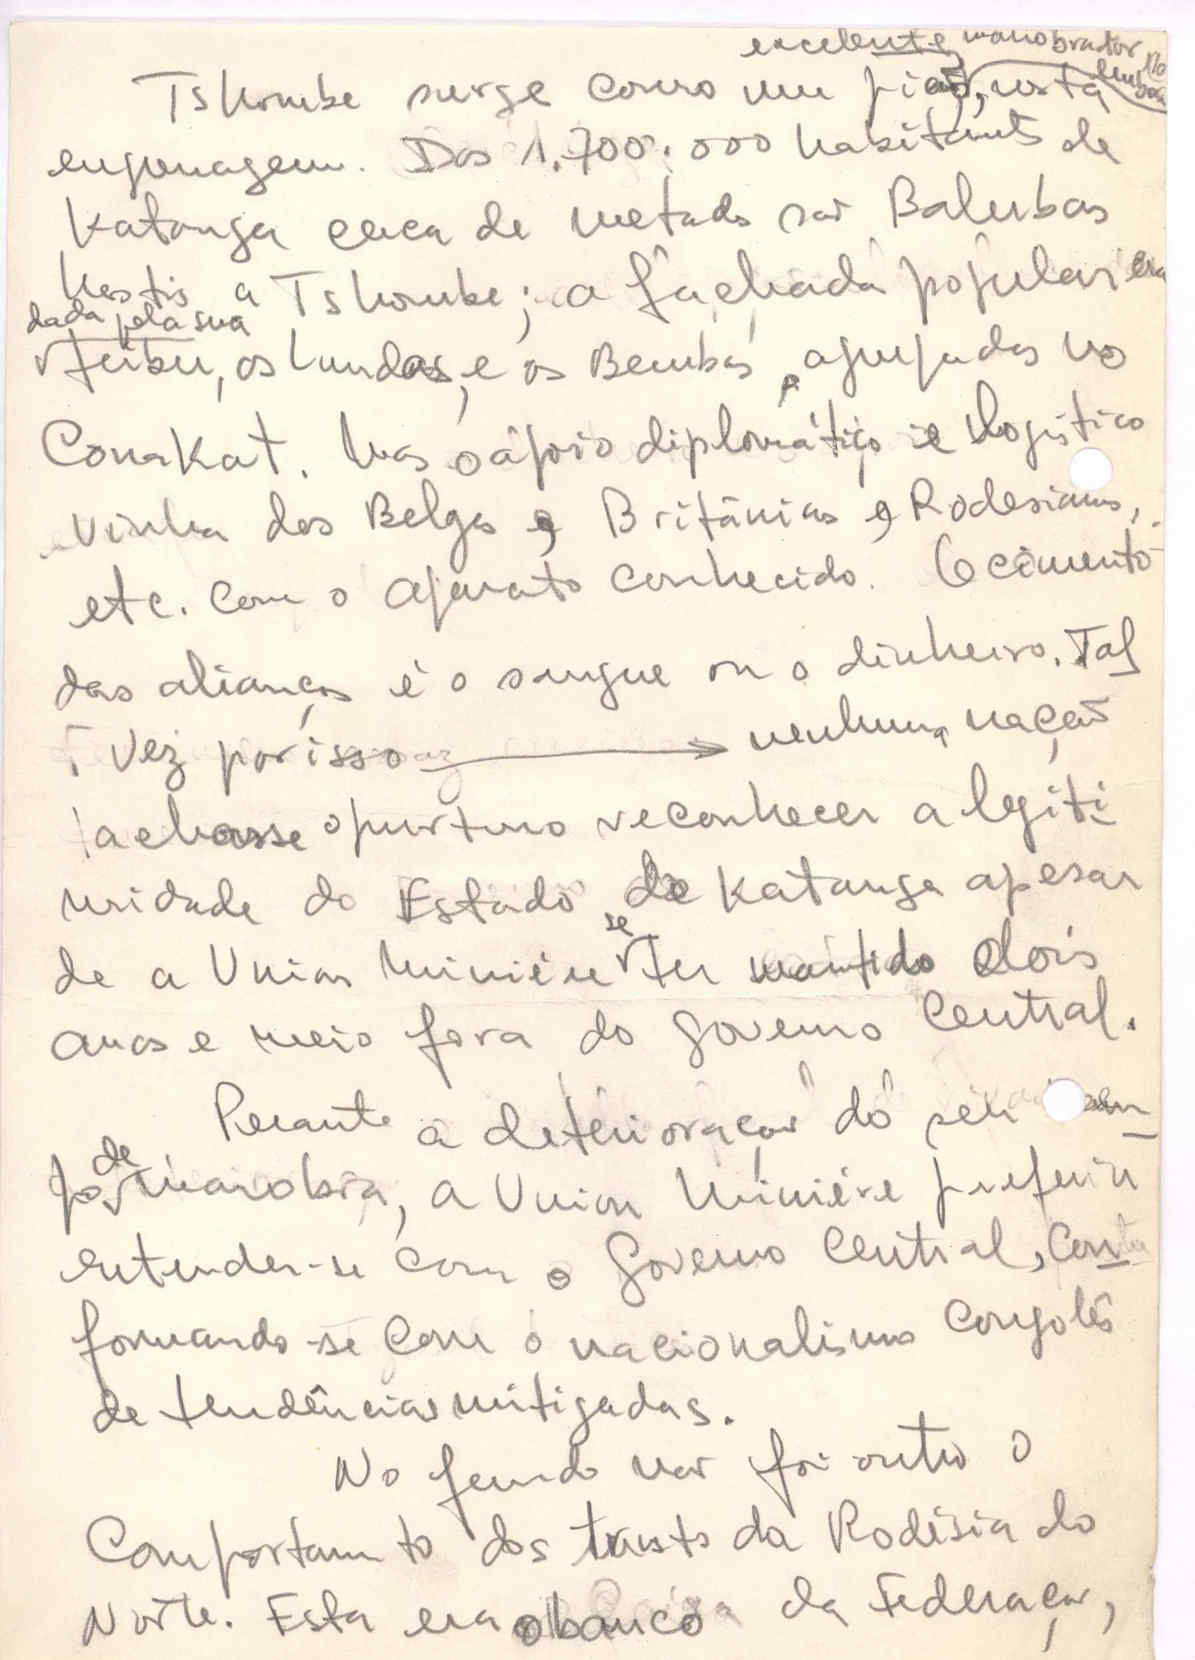 excelente manobrador
embora
Tshombe surge como um pião, nesta
engrenagem. Dos 1.700.000 habitants de
Katanga cerca de metade são Balubas
hostis a Tshombe; a fachada popular era
dada pela sua
tribu, os Lundas, e os Bembas, agrupados no
Conakat. Mas o apoio diplomático e logístico
vinha dos Belgas e Britânicos e Rodesianos,
etc. com o aparato conhecido. O cimento
das alianças é o sangue ou o dinheiro. Tal
vez por isso nenhuma nação
achasse oportuno reconhecer a legiti
midade do Estado de Katanga apesar
de a Union Minière se ter mantido dois
anos e meio fora do Governo Central.
Perante a deterioração do seu cam
po de manobra, a Union Minière preferiu
entender-se com o Governo Central, con
formando-se com o nacionalismo congolês
de tendências mitigadas.
No fundo não foi outro o
comportamento dos trusts da Rodésia do
Norte. Esta era o banco da Federação,